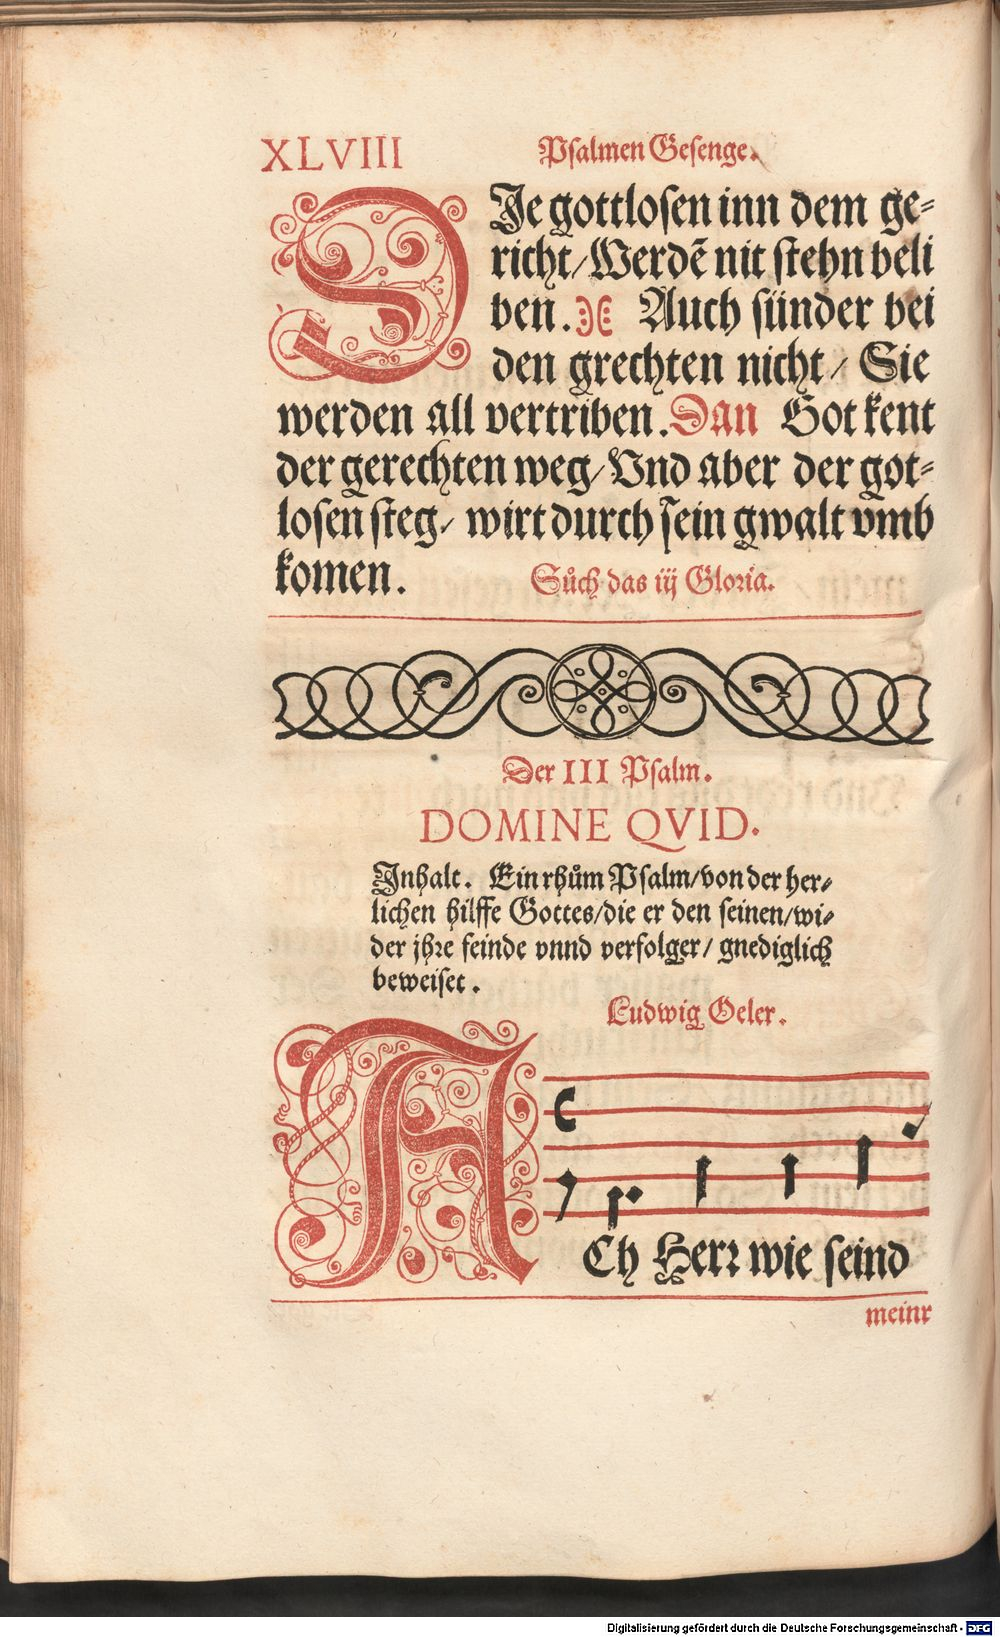 XLVIII Psalmen Gesenge.
DIe gottlosen inn dem ge-
richt/Werdē nit stehn beli
ben. Auch sünder bei
den grechten nicht/ Sie
werden all vertriben. Dan Got kent
der gerechten weg/Vnd aber der got-
losen steg/ wirt durch sein gwalt vmb
komen. Sůch das iij Gloria.
Der III Psalm.
DOMINE QVID.
Inhalt. Ein rhům Psalm/von der her-
lichen hilffe Gottes/die er den seinen/wi-
der jhre feinde vnnd verfolger/ gnediglich
beweiset.
Ludwig Oeler.
ACh Herr wie seind
meinr
Digitalisierung gefördert durch die Deutsche Forschungsgemeinschaft - DFG